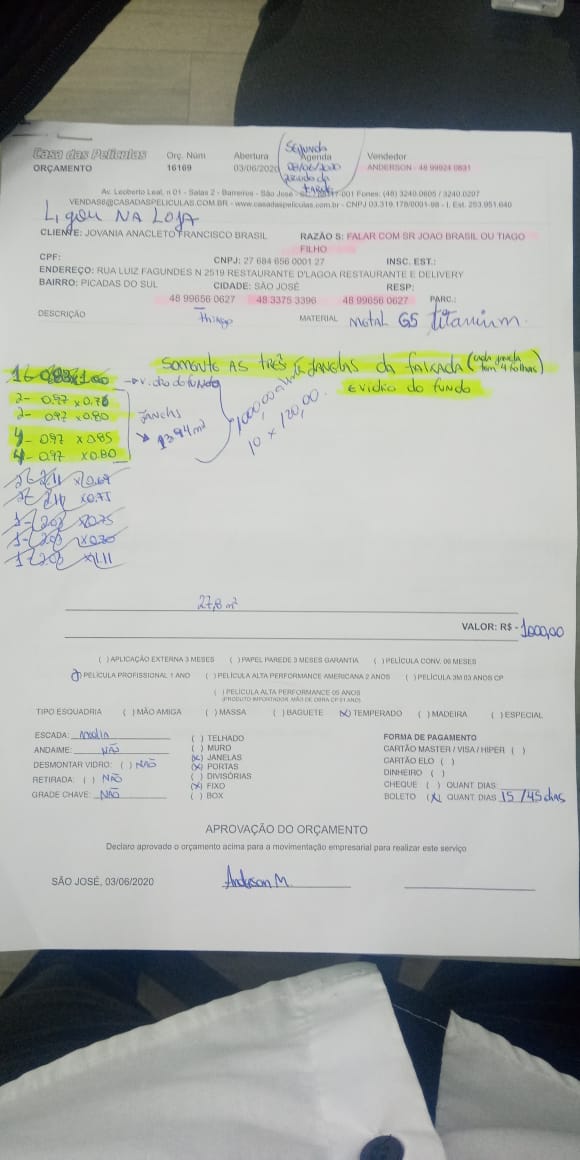 Casa das Películas Orç. Núm Abertura Segunda Agenda Vendedor
ORÇAMENTO 16169 03/06/2020 08/06/2020 ANDERSON - 48 99924 0831
Av. Leoberto Leal, n 01 - Salas 2 - Barreiros - São José - 001 Fones: (48) 3240.0606 / 3240.0207
VENDAS6@CASADASPELICULAS.COM.BR - www.casadaspeliculas.com.br - CNPJ 03.319.178/0001-98 - I. Est. 253.951.640
Ligou NA LOJA
CLIENTE: JOVANIA ANACLETO FRANCISCO BRASIL RAZÃO S: FALAR COM SR JOAO BRASIL OU TIAGO
FILHO
CPF: CNPJ: 27 684 656 0001 27 INSC. EST.:
ENDEREÇO: RUA LUIZ FAGUNDES N 2519 RESTAURANTE D'LAGOA RESTAURANTE E DELIVERY
BAIRRO: PICADAS DO SUL CIDADE: SÃO JOSÉ RESP:
48 99656 0627 48 3375 3396 48 99656 0627 PARC.:
DESCRIÇÃO Thiago MATERIAL Metal G5 titanium.
SOMENTE AS TRÊS JANELAS DA FAIXADA (cada janela tem 4 folhas)
E vidro do fundo
vidro do fundo
2- 0.97 x 0.76
2- 0.97 x 0.80
JANELAS
4- 0.97 x 0.85
13.94 m²
4- 0.97 x 0.80
1000,00
10 x 120,00.
27,8 m²
VALOR: R$ - 1000,00
( ) APLICAÇÃO EXTERNA 3 MESES ( ) PAPEL PAREDE 3 MESES GARANTIA ( ) PELÍCULA CONV. 06 MESES
(x) PELÍCULA PROFISSIONAL 1 ANO ( ) PELÍCULA ALTA PERFORMANCE AMERICANA 2 ANOS ( ) PELÍCULA 3M 03 ANOS CP
( ) PELÍCULA ALTA PERFORMANCE 05 ANOS
(PRODUTO IMPORTADOR MÃO DE OBRA CP 01 ANO)
TIPO ESQUADRIA ( ) MÃO AMIGA ( ) MASSA ( ) BAGUETE (x) TEMPERADO ( ) MADEIRA ( ) ESPECIAL
ESCADA: média ( ) TELHADO FORMA DE PAGAMENTO
ANDAIME: NÃO ( ) MURO CARTÃO MASTER / VISA / HIPER ( )
DESMONTAR VIDRO: ( ) NÃO (x) JANELAS CARTÃO ELO ( )
RETIRADA: ( ) NÃO (x) PORTAS DINHEIRO ( )
GRADE CHAVE: NÃO ( ) DIVISÓRIAS CHEQUE ( ) QUANT. DIAS:
(x) FIXO BOLETO (x) QUANT. DIAS 15 / 45 dias
( ) BOX
APROVAÇÃO DO ORÇAMENTO
Declaro aprovado o orçamento acima para a movimentação empresarial para realizar este serviço
SÃO JOSÉ, 03/06/2020 Anderson M.